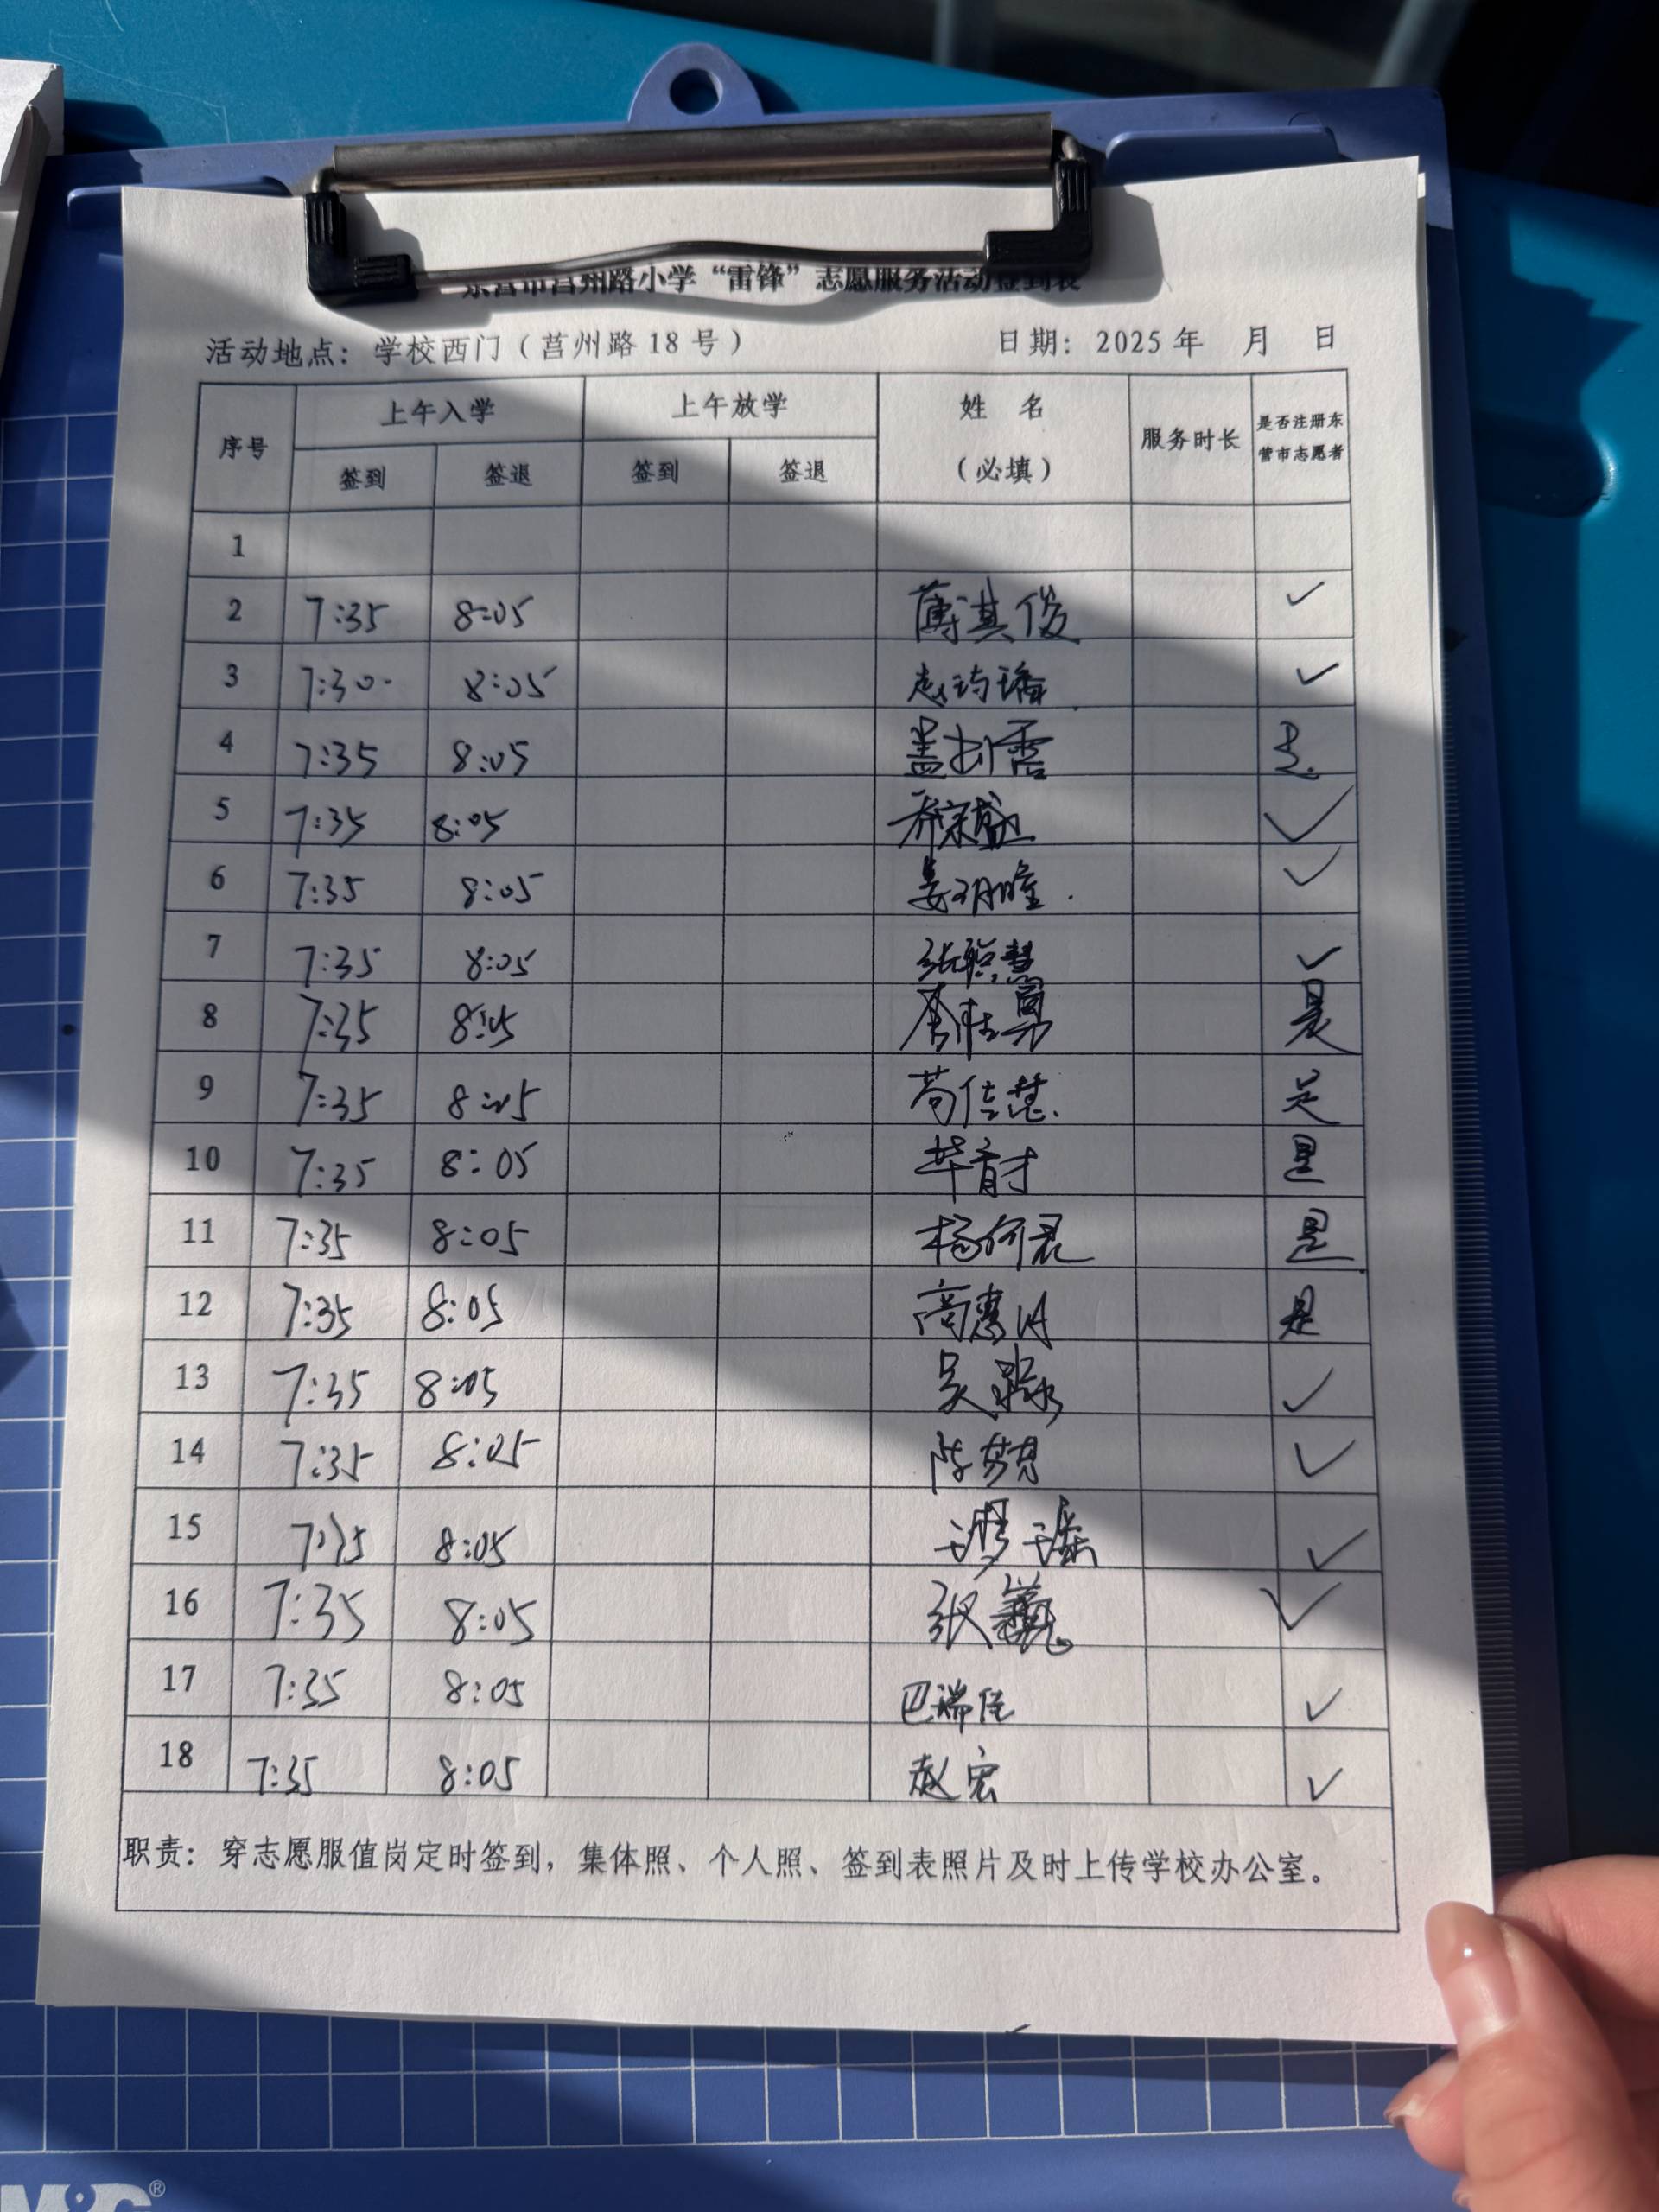 东营市莒州路小学“雷锋”志愿服务活动签到表
活动地点：学校西门（莒州路18号） 日期：2025年 月 日
序号 上午入学 上午放学 姓 名 （必填） 服务时长 是否注册东营市志愿者
签到 签退 签到 签退
1
2 7:35 8:05 薄淇俊 ✓
3 7:30 8:05 ✓
4 7:35 8:05
5 7:35 8:05 ✓
6 7:35 8:05 ✓
7 7:35 8:05 张聪慧 ✓
8 7:35 8:05 是
9 7:35 8:05 苟佳慧 是
10 7:35 8:05 毕育才 是
11 7:35 8:05 是
12 7:35 8:05 是
13 7:35 8:05 ✓
14 7:35 8:05 ✓
15 7:35 8:05 ✓
16 7:35 8:05 张 ✓
17 7:35 8:05 巴瑞佳 ✓
18 7:35 8:05 赵宏 ✓
职责：穿志愿服值岗定时签到，集体照、个人照、签到表照片及时上传学校办公室。
M&G®